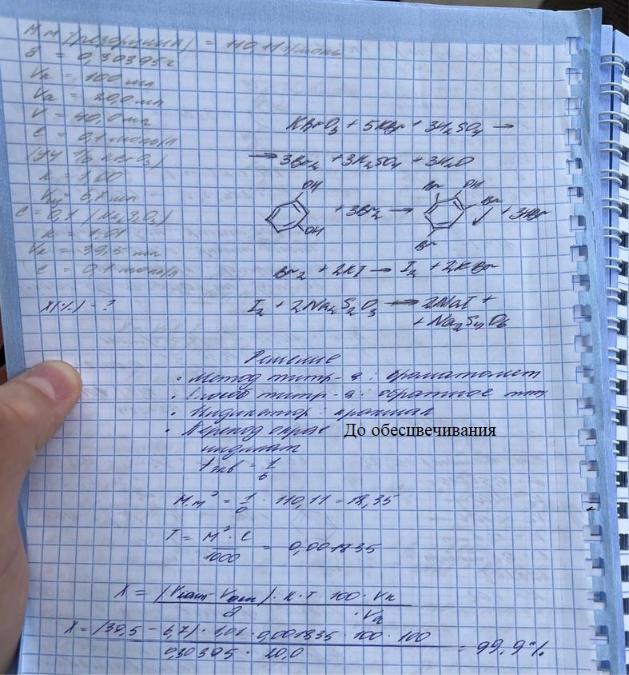 М.м (резорцина) = 110,11 г/моль
a = 0,30395 г
Vк = 100 мл
Va = 20,0 мл
V = 40,0 мл
C = 0,1 моль/л
(1/6 KBrO3)
K = 1,00
C = 0,1 (Na2S2O3)
K = 1,01
Vк = 39,5 мл
C = 0,1 моль/л
X(%) - ?
KBrO3 + 5KBr + 3H2SO4 →
→ 3Br2 + 3K2SO4 + 3H2O
OH
OH
+ 3Br2 →
Br
OH
Br
Br
↓ + 3HBr
Br2 + 2KI → I2 + 2KBr
I2 + 2Na2S2O3 → 2NaI +
+ Na2S4O6
Решение
• Метод титр-я: броматомет
• Способ титр-я: обратное тит
• Индикатор: крахмал
• Переход окрас До обесцвечивания
индикат
fэкв = 1/6
М.мэ = 1/6 · 110,11 = 18,35
T = Мэ · C / 1000 = 0,001835
X = (Vконт - Vоп) · K · T · 100 · Vк / a · Va
X = (39,5 - 6,7) · 1,01 · 0,001835 · 100 · 100 / 0,30395 · 20,0 = 99,9%